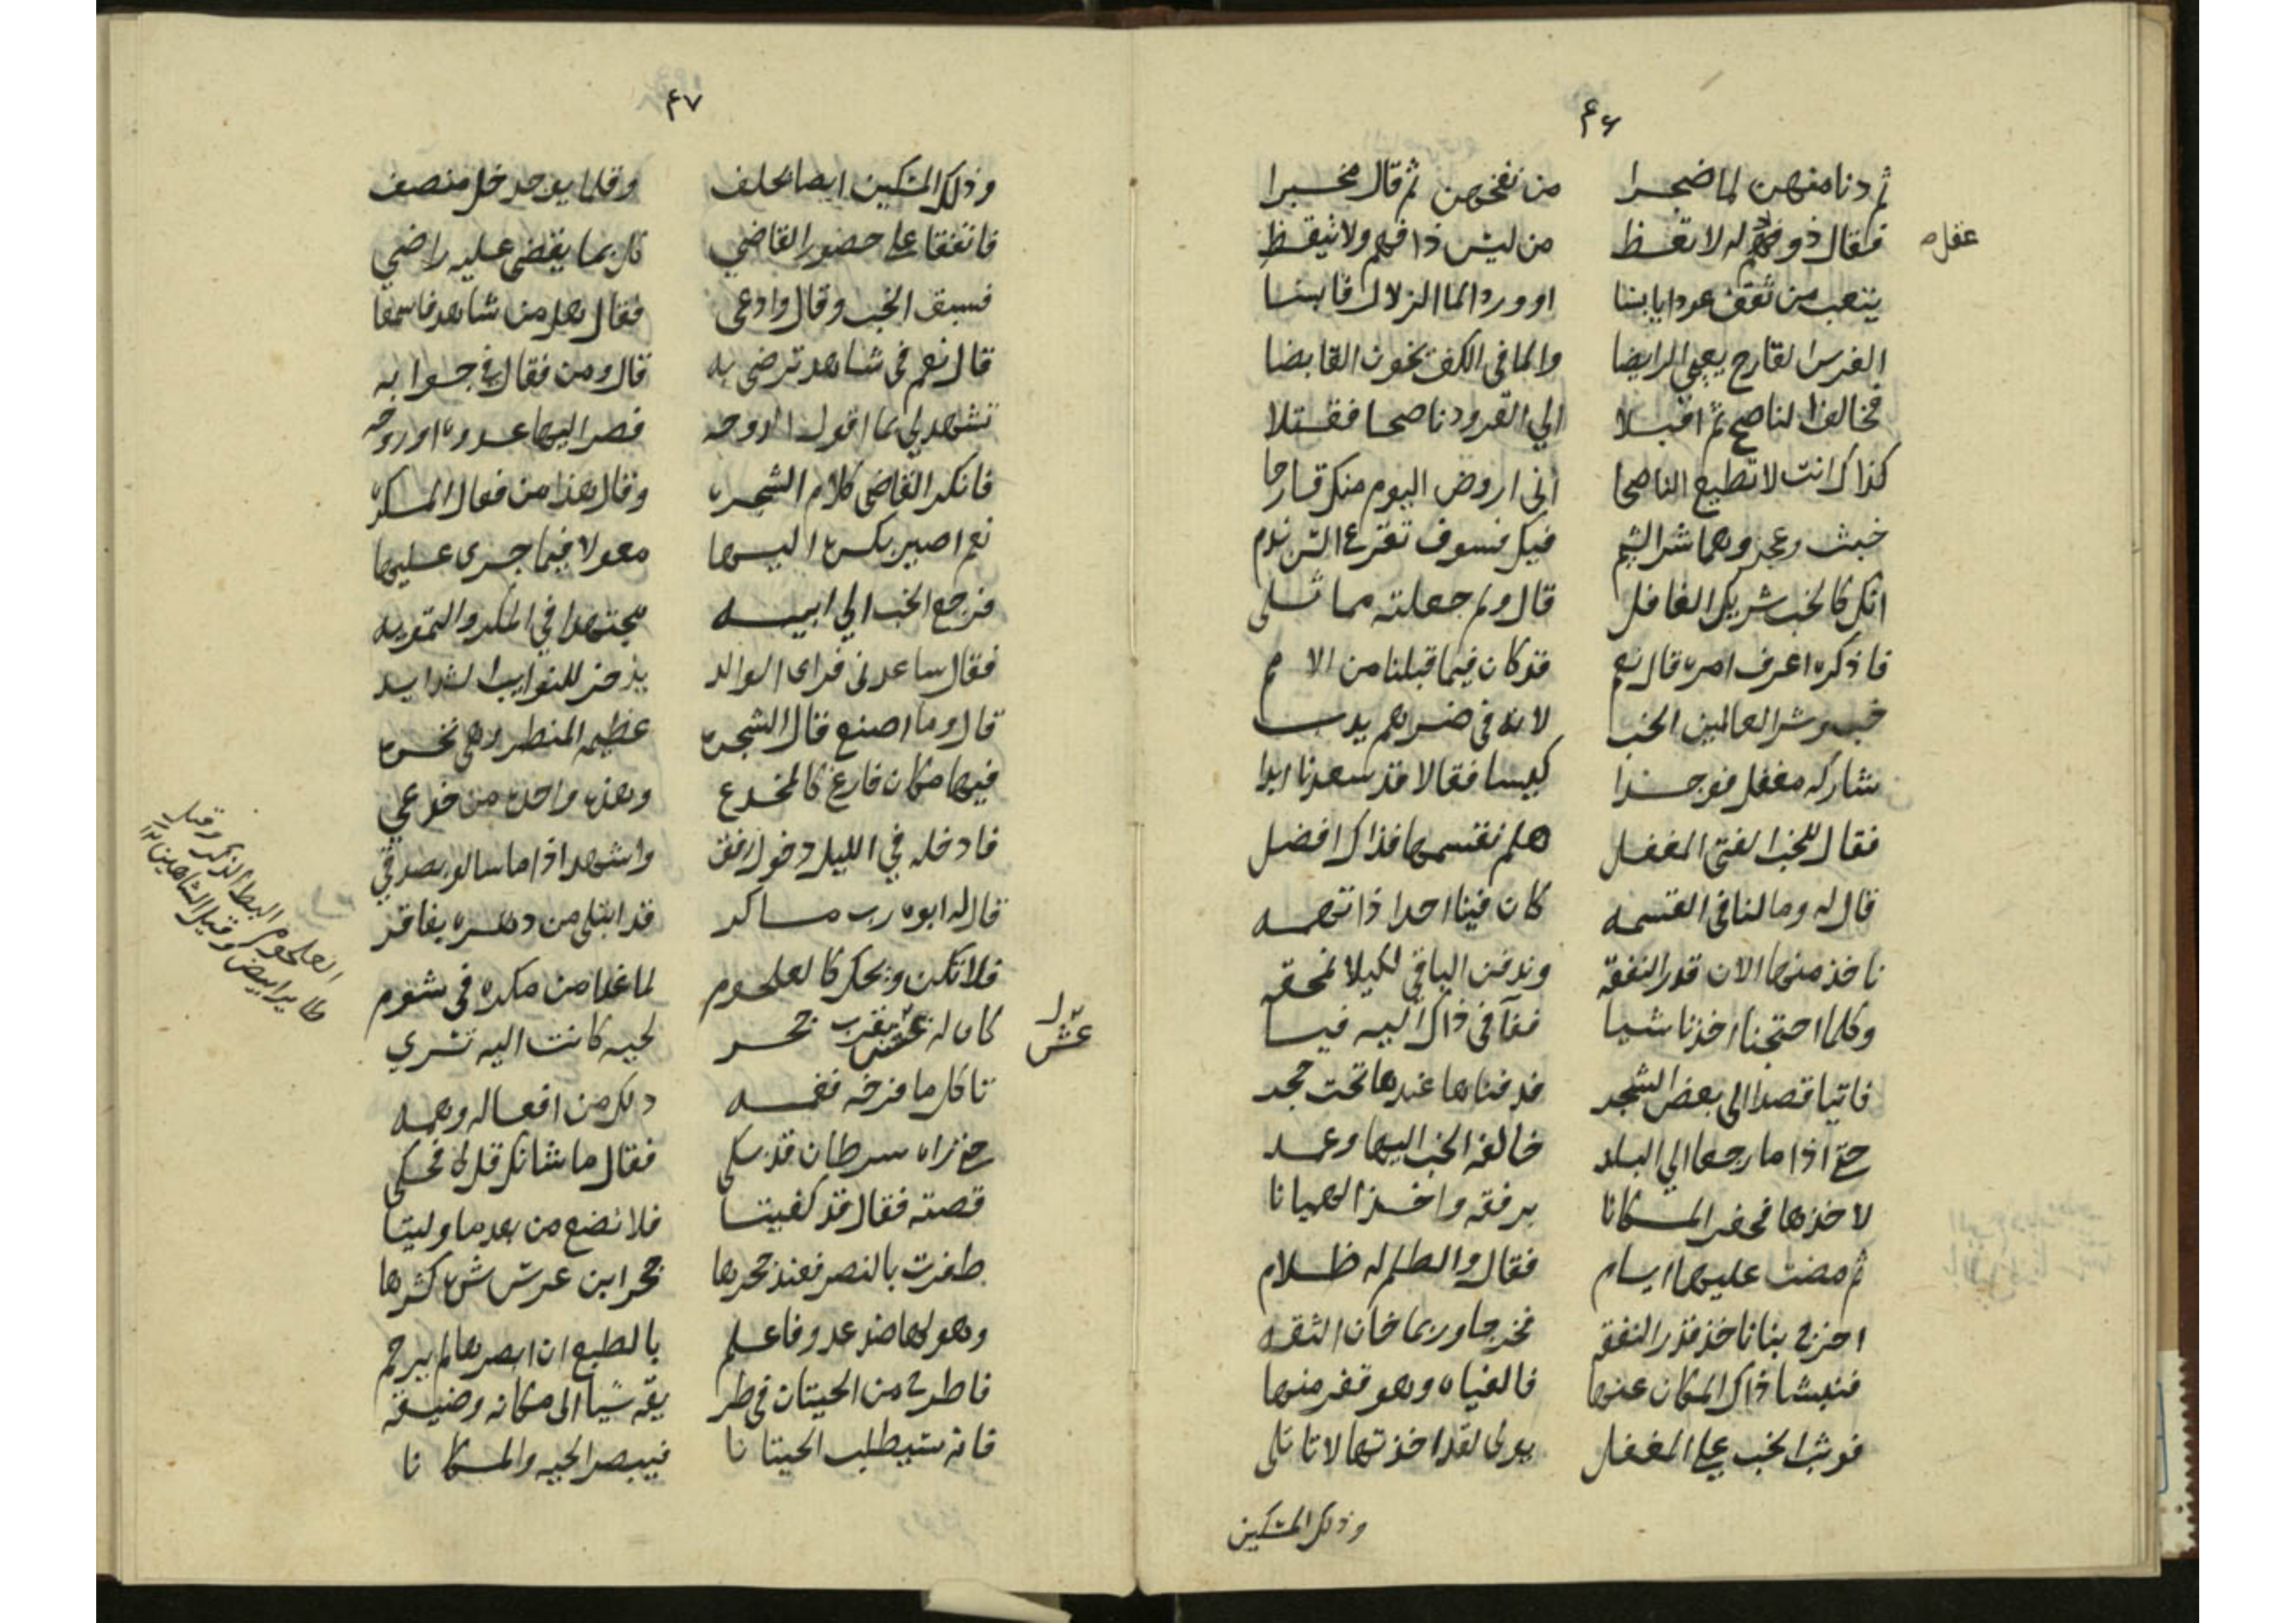 ٤٦
ثم دنا منهن لما ضجرا من نفخهن ثم قال مخبرا
فقال ذو فهم له لا تعظ من ليس ذا فهم ولا تيقظ
عقل
يتعب من ثقف عودا يابسا او ورد الما الزلال قابسا
الفرس القارح يعيي الرايضا والما في الكف يخون القابضا
فخالف الناصح ثم اقبلا الي القرود ناصحا فقتلا
كذاك انت لا تطيع الناصحا اني اروض اليوم منك قارحا
خبث وعجز وهما شر الشيم فيك فسوف تقرع السن ندم
انك كالخب شريك الغافل قال ولم جعلته مماثلي
فاذكره اعرف امره قال نعم قد كان فيما قبلنا من الامم
خب وشر العالمين الخب لانه في ضرهم يدب
شاركه مغفل فوجدا كيسا فقالا قد سعدنا ابدا
فقال للخب الفتي المغفل هلم نقتسمها فذاك افضل
قال له وما لنا في القسمه كان فينا احدا ذا تهمه
ناخذ منها الان قدر النفقة وندفن الباقي لكيلا نمحقه
وكلما احتجنا اخذنا شيا ففآ في ذاك اليه فيا
فاتيا قصدا الى بعض الشجر فدفناها عندها تحت حجر
حتى اذا ما رجعا الي البلد خالفه الخب اليها وعمد
لاخذها فحفر المكانا برفقه واخذ الهميانا
ثم مضت عليهما ايام فقال والظلم له ظلام
اخرج بنا ناخذ قدر النفقه فخرجا وربما خان الثقه
فنبشا ذاك المكان عنها فالفياه وهو قفر منها
فوثب الخب علي المغفل يولى لقد اخذتها لا تاتلي
وذلك المسكين
٤٧
وذلك المسكين ايضا يحلف وقلما يوجد خل منصف
فاتفقا على حضور القاضي كل بما يقضي عليه راضي
فسبق الخب وقال وادعى فقال هل من شاهد فاسمعا
قال نعم في شاهد ترضى به قال ومن فقال في جوابه
تشهد لي بما اقول الدوحه فصر اليها غدوة او روحه
فانكر القاضي كلام الشجره وقال هذا من فعال المكره
نعم اصير بكرة اليها معولا فيما جرى عليها
فرجع الخب الي ابيه مجتهدا في المكر والتمويه
فقال ساعدني فراى الوالد يذخر للنوايب الشدايد
قال وما اصنع قال الشجره عظيمة المنظر وهي نخره
فيها مكان فارغ كالمخدع وهذه واحدة من خدعي
فادخله في الليل دخول رفق واشهد اذا ما سالوا بصدق
قال له ابوه رب ماكر قد ابتلي من دهره بفاقر
فلا تكن ويحك كالعلجوم لما غدا من مكره في شوم
العلجوم البط الذكر وقيل
طاير ابيض وقيل الشاهين ١٢
كان له عش بقرب جحر لحيه كانت اليه تسري
عش
تاكل ما فرخه فغمه ذلك من افعاله وهمه
حتى راه سرطان قد بكى فقال ما شانك قل لي فحكى
قصته فقال قد كفيتا فلا تضع من بعد ما وليتا
طفرت بالنصر فعند جحرها جحر ابن عرس
وهو لها ضد عدو فاعلم بالطبع ان ابصرها لم يرحم
فاطرح من الحيتان في طريقه شيا الى مكانه وضيقه
فانه سيطلب الحيتانا فيبصر الحيه والمكانا